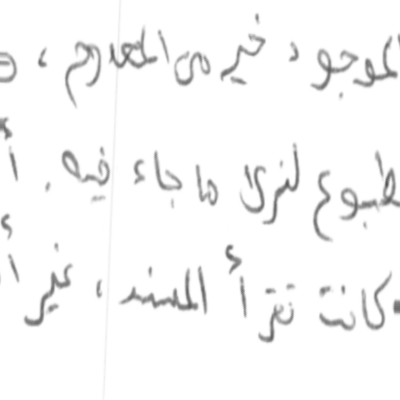 الموجود خير من المعدوم ،
لنرى ما جاء فيه .
كانت تقرأ المسند ، غير